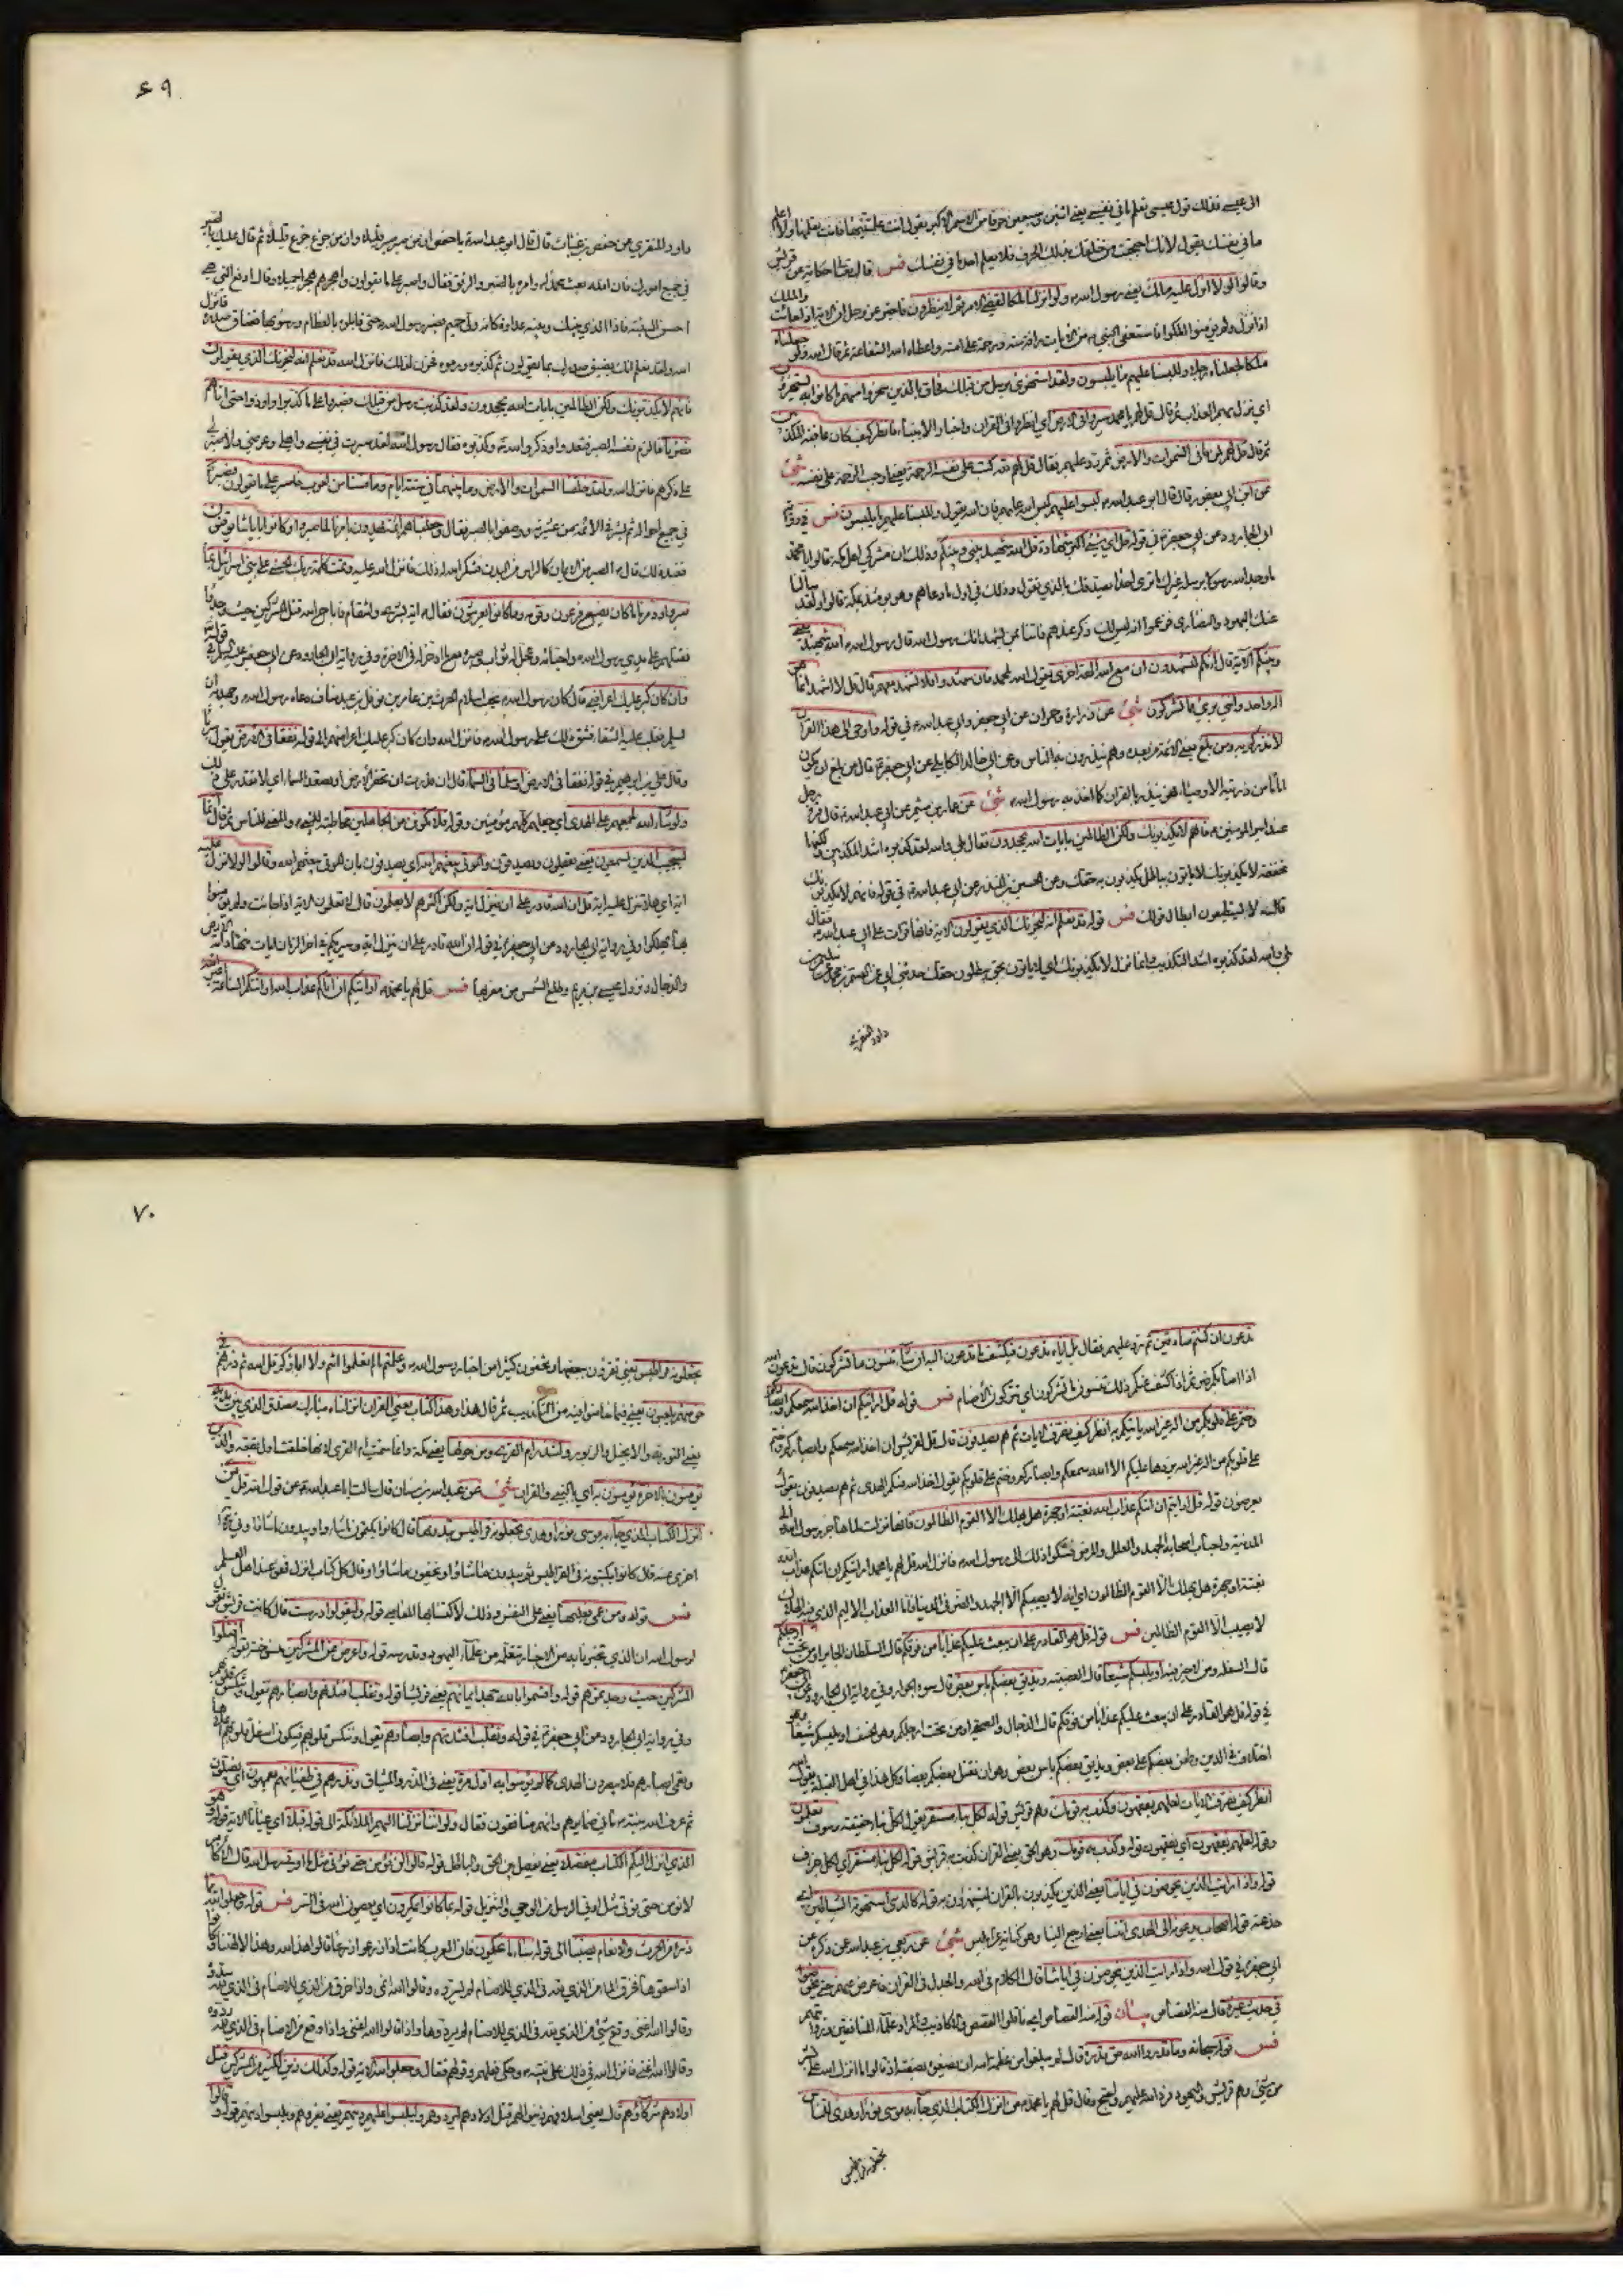 الى عيسى فذلك قول عيسى تعلم ما في نفسي يعني اثنين وسبعين حرفا من الاسم الاكبر يقول انت علمتنيها فانت تعلمها ولا اعلم
ما في نفسك يقول لانك احتجبت من خلقك بذلك الحرف فلا يعلم احد ما في نفسك فس قال حكاية عن قريش
وقالوا لولا انزل عليه ملك يعني رسول الله ولو انزلنا ملكا لقضي الامر ثم لا ينظرون فاخبر عز وجل ان الاية اذا جاءت والملك
اذا نزل ولم يؤمنوا هلكوا فاستعفى النبي من الايات رافة منه ورحمة على امته واعطاه الله الشفاعة ثم قال الله ولو جعلناه
ملكا لجعلناه رجلا وللبسنا عليهم ما يلبسون ولقد استهزئ برسل من قبلك فحاق بالذين سخروا منهم ما كانوا به يستهزؤن
اي نزل بهم العذاب ثم قال قل لهم يا محمد سيروا في الارض اي انظروا في القران واخبار الانبياء فانظروا كيف كان عاقبة المكذبين
ثم قال قل لهم لمن ما في السموات والارض ثم رد عليهم فقال قل لهم لله كتب على نفسه الرحمة يعني اوجب الرحمة على نفسه شئ
عن ابن ابي يعفور قال قال ابو عبد الله لبسوا عليهم لبس الله عليهم فان الله يقول وللبسنا عليهم ما يلبسون فس في رواية
ابي الجارود عن ابي جعفر في قوله قل اي شئ اكبر شهادة قل الله شهيد بيني وبينكم وذلك ان مشركي اهل مكة قالوا يا محمد
ما وجد الله رسولا يرسله غيرك ما نرى احدا يصدقك بالذي تقول وذلك في اول ما دعاهم وهو يومئذ بمكة قالوا ولقد سالنا
عنك اليهود والنصارى فزعموا انه ليس لك ذكر عندهم فاتنا بمن يشهد انك رسول الله قال رسول الله الله شهيد بيني
وبينكم الآية قال أئنكم لتشهدون ان مع الله الهة اخرى يقول الله لمحمد فان شهدوا فلا تشهد معهم قال قل لا اشهد انما هو
اله واحد وانني بري مما تشركون شئ عن زرارة وحمران عن ابي جعفر وابي عبد الله في قوله واوحي الى هذا القران
لانذركم به ومن بلغ يعني الائمة من بعده وهم ينذرون به الناس وعن ابي خالد الكابلي عن ابي جعفر قال من بلغ ان يكون
اماما من ذرية الاوصياء فهو ينذر بالقران كما انذر به رسول الله شئ عن عمار بن ميثم عن ابي عبد الله قال قرأ رجل
عند امير المؤمنين فانهم لا يكذبونك ولكن الظالمين بايات الله يجحدون فقال بلى والله لقد كذبوه اشد المكذبين ولكنها
مخففة لا يكذبونك لا ياتون بباطل يكذبون به حقك وعن الحسين بن المنذر عن ابي عبد الله في قوله فانهم لا يكذبونك
قال لا يستطيعون ابطال قولك فس قوله قد نعلم انه ليحزنك الذي يقولون الاية فانها قرات على ابي عبد الله فقال
بلى والله لقد كذبوه اشد التكذيب وانما نزل لا يكذبونك اي لا ياتون بحق يبطلون حقك حدثني ابي عن القسم بن محمد عن سليمن بن
داود المنقري
٤٩
داود المنقري عن حفص بن غياث قال قال ابو عبد الله يا حفص ان من صبر صبر قليلا وان من جزع جزع قليلا ثم قال عليك بالصبر
في جميع امورك فان الله بعث محمدا وامره بالصبر والرفق فقال واصبر على ما يقولون واهجرهم هجرا جميلا وقال ادفع بالتي هي
احسن السيئة فاذا الذي بينك وبينه عداوة كانه ولي حميم فصبر رسول الله حتى قابلوه بالعظام ورموه بها فضاق صدره فانزل
الله ولقد نعلم انك يضيق صدرك بما يقولون ثم كذبوه ورموه فحزن لذلك فانزل الله قد نعلم انه ليحزنك الذي يقولون
فانهم لا يكذبونك ولكن الظالمين بايات الله يجحدون ولقد كذبت رسل من قبلك فصبروا على ما كذبوا واوذوا حتى اتاهم
نصرنا فالزم نفسه الصبر فقعدوا وذكروا الله وكذبوه فقال رسول الله لقد صبرت في نفسي واهلي وعرضي ولا صبر لي
على ذكرهم فانزل الله ولقد خلقنا السموات والارض وما بينهما في ستة ايام وما مسنا من لغوب فاصبر على ما يقولون فصبر
في جميع احواله ثم بشر في الائمة من عترته ووصفوا بالصبر فقال وجعلناهم ائمة يهدون بامرنا لما صبروا وكانوا باياتنا يوقنون
فعند ذلك قال الصبر من الايمان كالراس من البدن فشكر الله له ذلك فانزل الله عليه وتمت كلمة ربك الحسنى على بني اسرائيل بما
صبروا ودمرنا ما كان يصنع فرعون وقومه وما كانوا يعرشون فقال اية بشرى وانتقام فاباح الله قتل المشركين حيث وجدوا
فقتلهم على يدي رسول الله واحبائه وعجل له ثواب صبره مع ما ادخر له في الاخرة وفي رواية ابي الجارود عن ابي جعفر في قوله
وان كان كبر عليك اعراضهم قال كان رسول الله يحب اسلام الحرث بن عامر بن نوفل بن عبد مناف دعاه رسول الله وجهد به ان
يسلم فغلب عليه الشقاء فشق ذلك على رسول الله فانزل الله وان كان كبر عليك اعراضهم الى قوله نفقا في الارض يقول سربا
وقال علي بن ابراهيم في قوله نفقا في الارض او سلما في السماء قال ان قدرت ان تحفر الارض او تصعد السماء اي لا تقدر على ذلك
ولو شاء الله لجمعهم على الهدى اي جعلهم كلهم مؤمنين وقوله فلا تكونن من الجاهلين مخاطبة للنبي والمعنى للناس ثم قال انما
يستجيب الذين يسمعون يعني يعقلون ويصدقون والموتى يبعثهم الله اي يصدقون بان الموتى يبعثهم الله وقالوا لولا نزل عليه
اية اي هلا نزل عليه اية قل ان الله قادر على ان ينزل اية ولكن اكثرهم لا يعلمون قال لا يعلمون ان الاية اذا جاءت ولم يؤمنوا
بها يهلكوا وفي رواية ابي الجارود عن ابي جعفر في قوله ان الله قادر على ان ينزل اية وسيريكم في اخر الزمان ايات منها دابة الارض
والدجال ونزول عيسى بن مريم وطلوع الشمس من مغربها فس قل لهم يا محمد ارايتكم ان اتاكم عذاب الله او اتتكم الساعة اغير الله
تدعون ان كنتم صادقين ثم رد عليهم فقال بل اياه تدعون فيكشف ما تدعون اليه ان شاء وتنسون ما تشركون قال تدعون الله
اذا اصابكم ضر ثم اذا كشف عنكم ذلك تنسون ما تشركون اي تتركون الاصنام فس قوله قل ارايتم ان اخذ الله سمعكم وابصاركم
وختم على قلوبكم من اله غير الله ياتيكم به انظر كيف نصرف الايات ثم هم يصدفون قال قل لقريش ان اخذ الله سمعكم وابصاركم وختم
على قلوبكم من اله غير الله يرد ها عليكم الا الله سمعكم وابصاركم وختم على قلوبكم يقول اخذ الله منكم الهدى ثم هم يصدفون يقول
يعرضون قوله قل ارايتم ان اتيكم عذاب الله بغتة او جهرة هل يهلك الا القوم الظالمون فانها نزلت لما هاجر رسول الله الى
المدينة واصاب اصحابه الجهد والعلل والمرض فشكوا ذلك الى رسول الله فانزل الله قل لهم يا محمد ارايتكم ان اتيكم عذاب الله
بغتة او جهرة هل يهلك الا القوم الظالمون اي انه لا يصيبكم الا الجهد والضر في الدنيا فاما العذاب الاليم الذي فيه الهلاك
لا يصيب الا القوم الظالمين فس قوله قل هو القادر على ان يبعث عليكم عذابا من فوقكم قال السلطان الجاير او من تحت ارجلكم
قال السفلة ومن لا خير فيه او يلبسكم شيعا قال العصبية ويذيق بعضكم باس بعض قال سوء الجوار وفي رواية ابي الجارود عن ابي جعفر
في قوله قل هو القادر على ان يبعث عليكم عذابا من فوقكم قال الدجال والصيحة او من تحت ارجلكم وهو الخسف او يلبسكم شيعا وهو
اختلاف في الدين وطعن بعضكم على بعض ويذيق بعضكم باس بعض وهو ان يقتل بعضكم بعضا وكل هذا في اهل القبلة يقول الله
انظر كيف نصرف الايات لعلهم يفقهون وكذب به قومك وهم قريش قوله لكل نبا مستقر يقول لكل نبا حقيقة وسوف تعلمون
وقوله لعلهم يفقهون اي يفقهون قوله وكذب به قومك وهو الحق يعني القران كذبت به قريش قوله لكل نبا مستقر اي لكل خبر
قوله واذا رايت الذين يخوضون في اياتنا يعني الذين يكذبون بالقران ويستهزؤن به قوله كالذي استهوته الشياطين اي
خدعته قوله اصحاب يدعونه الى الهدى ائتنا يعني ارجع الينا وهو كناية عن ابليس شئ عن ربعي بن عبد الله عن ذكره عن
ابي جعفر في قول الله واذا رايت الذين يخوضون في اياتنا قال الكلام في الله والجدال في القران فاعرض عنهم حتى يخوضوا
في حديث غيره قال منه القصاص بيان
فس قوله سبحانه وما قدروا الله حق قدره قال لم يبلغوا من عظمة الله ان يصفوه بصفته اذ قالوا ما انزل الله على بشر
من شئ وهم قريش واليهود فرد الله عليهم واحتج وقال قل لهم يا محمد من انزل الكتاب الذي جاء به موسى نورا وهدى للناس
تجعلونه قراطيس
٧٠
تجعلونه قراطيس يعني تقرؤن ببعضها وتخفون كثيرا من اخبار رسول الله وعلمتم ما لم تعلموا انتم ولا اباؤكم قل الله ثم ذرهم في
خوضهم يلعبون يعني فيما خاضوا فيه من التكذيب ثم قال هذا وهذا كتاب يعني القران انزلناه مبارك مصدق الذي بين يديه
يعني التورية والانجيل والزبور ولتنذر ام القرى ومن حولها يعني مكة وانما سميت ام القرى لانها خلقت اول بقعة والذين
يؤمنون بالاخرة يؤمنون به اي بالنبي والقران شئ عن عبد الله بن سنان قال سالت ابا عبد الله عن قول الله قل من
انزل الكتاب الذي جاء به موسى نورا وهدى تجعلونه قراطيس تبدونها قال كانوا يكتمون ما شاؤا ويبدون ما شاؤا وفي رواية
اخرى عنه قال كانوا يكتبونه في القراطيس ثم يبدون ما شاؤا ويخفون ما شاؤا وقال كل كتاب انزل فهو عند اهل العلم
فس قوله ومن عمي فعليها يعني على النفس وذلك لاكتسابها المعاصي قوله وليقولوا درست قال كانت قريش تقول
لرسول الله ان الذي تخبرنا به من الاخبار تتعلمه من علماء اليهود وتدرسه قوله واعرض عن المشركين منسوخ بقوله اقتلوا
المشركين حيث وجدتموهم قوله واقسموا بالله جهد ايمانهم يعني قريشا قوله ونقلب افئدتهم وابصارهم يقول وننكس قلوبهم
وفي رواية ابي الجارود عن ابي جعفر في قوله ونقلب افئدتهم وابصارهم يقول وننكس قلوبهم فيكون اسفل قلوبهم اعلاها
ونعمي ابصارهم فلا يبصرون الهدى كما لم يؤمنوا به اول مرة يعني في الذر والميثاق ونذرهم في طغيانهم يعمهون اي يضلون
ثم عرف الله نبيه ما في ضمايرهم وانهم منافقون فقال ولو اننا نزلنا اليهم الملائكة الى قوله قبلا اي عيانا الاية قوله وهو
الذي انزل اليكم الكتاب مفصلا يعني يفصل بين الحق والباطل قوله قالوا لن نؤمن حتى نؤتى مثل ما اوتي رسل الله قال الاكابر
لا نؤمن حتى نؤتى مثل اوتي الرسل من الوحي والتنزيل قوله بما كانوا يمكرون اي يعصون الله في السر فس قوله وجعلوا لله مما
ذرا من الحرث والانعام نصيبا الى قوله ساء ما يحكمون فان العرب كانت اذا زرعوا زرعا قالوا هذا لله وهذا لالهتنا وكانوا
اذا سقوها فخرق الماء من الذي لله في الذي للاصنام لم يسدوه وقالوا الله اغنى واذا خرق من الذي للاصنام في الذي لله سدوه
وقالوا الله اغنى واذا وقع شئ من الذي لله في الذي للاصنام لم يردوه وقالوا الله اغنى واذا وقع من الاصنام في الذي لله ردوه
وقالوا الله اغنى فانزل الله في ذلك على نبيه وحكى فعلهم وقولهم فقال وجعلوا لله الاية قوله وكذلك زين لكثير من المشركين قتل
اولادهم شركاؤهم قال يعني اسلافهم زينوا لهم قتل اولادهم ليردوهم وليلبسوا عليهم دينهم يعني يغروهم ويلبسوا دينهم قوله وقالوا